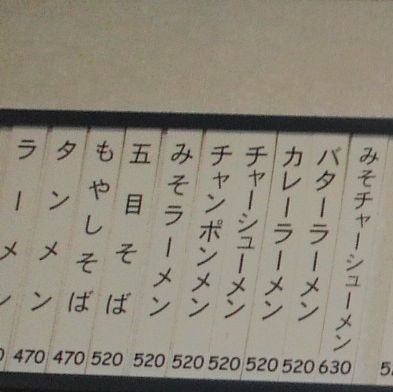 みそチャーシューメン
630
バターラーメン
520
カレーラーメン
520
チャーシューメン
520
チャンポンメン
520
みそラーメン
520
五目そば
520
もやしそば
470
タンメン
470
ラーメン